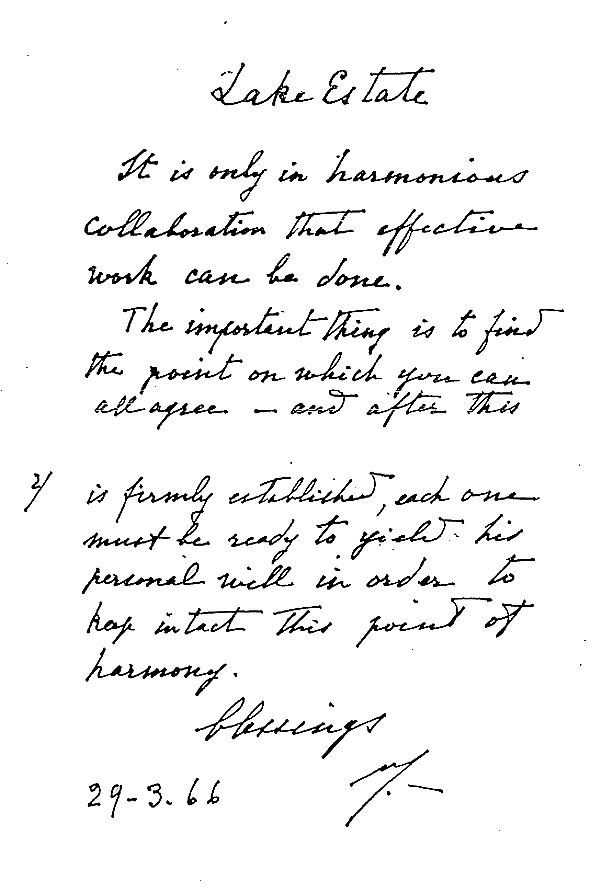 Lake Estate
It is only in harmonious
collaboration that effective
work can be done.
The important thing is to find
the point on which you can
all agree — and after this
2/ is firmly established, each one
must be ready to yield his
personal will in order to
keep intact this point of
harmony.
blessings
29-3.66